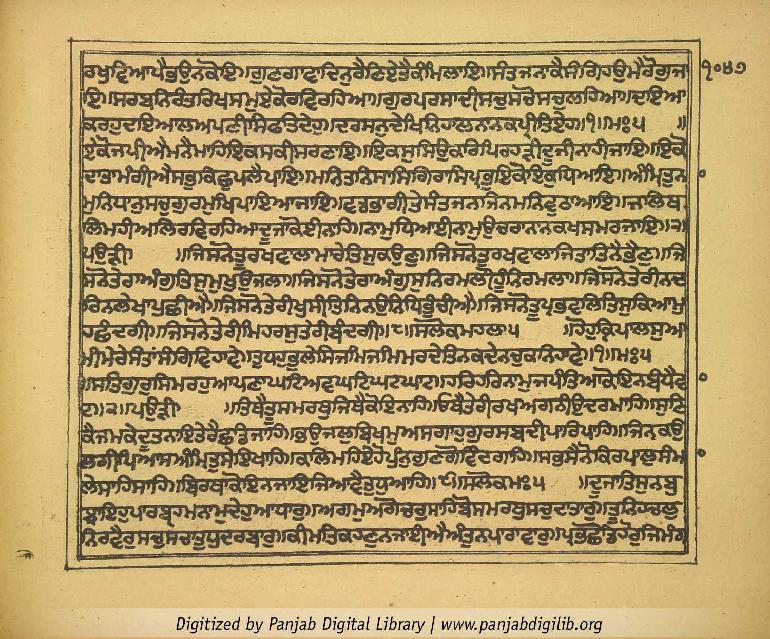 ਰਖੁ ਵਿਆਪੈ ਭਉ ਨ ਕੋਇ॥ਗੁਣ ਗਾਵਾ ਦਿਨੁ ਰੈਣਿ ਏਤੈ ਕੰਮਿ ਲਾਇ॥ਸੰਤ ਜਨਾ ਕੈ ਸੰਗਿ ਹਉਮੈ ਰੋਗੁ ਜਾ ੧੦੪੭
ਇ॥ਸਰਬ ਨਿਰੰਤਰਿ ਖਸਮੁ ਏਕੋ ਰਵਿ ਰਹਿਆ॥ਗੁਰ ਪਰਸਾਦੀ ਸਚੁ ਸਚੋ ਸਚੁ ਲਹਿਆ॥ਦਇਆ
ਕਰਹੁ ਦਇਆਲ ਅਪਣੀ ਸਿਫਤਿ ਦੇਹੁ॥ਦਰਸਨੁ ਦੇਖਿ ਨਿਹਾਲ ਨਾਨਕ ਪ੍ਰੀਤਿ ਏਹ॥੧॥ਮਃ ੫ ॥
ਏਕੋ ਜਪੀਐ ਮਨੈ ਮਾਹਿ ਇਕਸ ਕੀ ਸਰਣਾਇ॥ਇਕਸੁ ਸਿਉ ਕਰਿ ਪਿਰਹੜੀ ਦੂਜੀ ਨਾਹੀ ਜਾਇ॥ਇਕੋ
ਦਾਤਾ ਮੰਗੀਐ ਸਭੁ ਕਿਛੁ ਪਲੈ ਪਾਇ॥ਮਨਿ ਤਨਿ ਸਾਸਿ ਗਿਰਾਸਿ ਪ੍ਰਭੁ ਇਕੋ ਇਕੁ ਧਿਆਇ॥ਅੰਮ੍ਰਿਤੁ ਨਾ
ਮੁ ਨਿਧਾਨੁ ਸਚੁ ਗੁਰਮੁਖਿ ਪਾਇਆ ਜਾਇ॥ਵਡਭਾਗੀ ਤੇ ਸੰਤ ਜਨਾ ਜਿਨ ਮਨਿ ਵੁਠਾ ਆਇ॥ਜਲਿ ਥ
ਲਿ ਮਹੀਅਲਿ ਰਵਿ ਰਹਿਆ ਦੂਜਾ ਕੋਈ ਨਾਹਿ॥ਨਾਮੁ ਧਿਆਈ ਨਾਮੁ ਉਚਰਾ ਨਾਨਕ ਖਸਮ ਰਜਾਇ॥੨॥
ਪਉੜੀ ॥ਜਿਸ ਨੋ ਤੂ ਰਖਵਾਲਾ ਮਾਰੇ ਤਿਸੁ ਕਉਣੁ॥ਜਿਸ ਨੋ ਤੂ ਰਖਵਾਲਾ ਜਿਤਾ ਤਿਨੈ ਭੈਣੁ॥ਜਿ
ਸ ਨੋ ਤੇਰਾ ਅੰਗੁ ਤਿਸੁ ਮੁਖੁ ਉਜਲਾ॥ਜਿਸ ਨੋ ਤੇਰਾ ਅੰਗੁ ਸੁ ਨਿਰਮਲੀ ਹੂੰ ਨਿਰਮਲਾ॥ਜਿਸ ਨੋ ਤੇਰੀ ਨਦ
ਰਿ ਨ ਲੇਖਾ ਪੁਛੀਐ॥ਜਿਸ ਨੋ ਤੇਰੀ ਖੁਸੀ ਤਿਨਿ ਨਉ ਨਿਧਿ ਭੁੰਚੀਐ॥ਜਿਸ ਨੋ ਤੂ ਪ੍ਰਭ ਵਲਿ ਤਿਸੁ ਕਿਆ ਮੁ
ਹਛੰਦਗੀ॥ਜਿਸ ਨੋ ਤੇਰੀ ਮਿਹਰ ਸੁ ਤੇਰੀ ਬੰਦਗੀ॥੮॥ਸਲੋਕ ਮਹਲਾ ੫ ॥ਹੋਹੁ ਕ੍ਰਿਪਾਲ ਸੁਆ
ਮੀ ਮੇਰੇ ਸੰਤਾਂ ਸੰਗਿ ਵਿਹਾਵੇ॥ਤੁਧਹੁ ਭੁਲੇ ਸਿ ਜਮਿ ਜਮਿ ਮਰਦੇ ਤਿਨ ਕਦੇ ਨ ਚੁਕਨਿ ਹਾਵੇ॥੧॥ਮਃ ੫
॥ਸਤਿਗੁਰੁ ਸਿਮਰਹੁ ਆਪਣਾ ਘਟਿ ਅਵਘਟਿ ਘਟ ਘਾਟ॥ਹਰਿ ਹਰਿ ਨਾਮੁ ਜਪੰਤਿਆ ਕੋਇ ਨ ਬੰਧੈ ਵਾ
ਟ॥੨॥ਪਉੜੀ ॥ਤਿਥੈ ਤੂ ਸਮਰਥੁ ਜਿਥੈ ਕੋਇ ਨਾਹਿ॥ਓਥੈ ਤੇਰੀ ਰਖ ਅਗਨੀ ਉਦਰ ਮਾਹਿ॥ਸੁਣਿ
ਕੈ ਜਮ ਕੇ ਦੂਤ ਨਾਇ ਤੇਰੈ ਛਡਿ ਜਾਹਿ॥ਭਉਜਲੁ ਬਿਖਮੁ ਅਸਗਾਹੁ ਗੁਰ ਸਬਦੀ ਪਾਰਿ ਪਾਹਿ॥ਜਿਨ ਕਉ
ਲਗੀ ਪਿਆਸ ਅੰਮ੍ਰਿਤੁ ਸੇਇ ਖਾਹਿ॥ਕਲਿ ਮਹਿ ਏਹੋ ਪੁੰਨੁ ਗੁਣ ਗੋਵਿੰਦ ਗਾਹਿ॥ਸਭਸੈ ਨੋ ਕਿਰਪਾਲੁ ਸੰਮ੍ਹਾ
ਲੇ ਸਾਹਿ ਸਾਹਿ॥ਬਿਰਥਾ ਕੋਇ ਨ ਜਾਇ ਜਿ ਆਵੈ ਤੁਧੁ ਆਹਿ॥੯॥ਸਲੋਕ ਮਃ ੫ ॥ਦੂਜਾ ਤਿਸੁ ਨ ਬੁ
ਝਾਇਹੁ ਪਾਰਬ੍ਰਹਮ ਨਾਮੁ ਦੇਹੁ ਆਧਾਰੁ॥ਅਗਮੁ ਅਗੋਚਰੁ ਸਾਹਿਬੋ ਸਮਰਥੁ ਸਚੁ ਦਾਤਾਰੁ॥ਤੂ ਨਿਹਚਲੁ
ਨਿਰਵੈਰੁ ਸਚੁ ਸਚਾ ਤੁਧੁ ਦਰਬਾਰੁ॥ਕੀਮਤਿ ਕਹਣੁ ਨ ਜਾਈਐ ਅੰਤੁ ਨ ਪਾਰਾਵਾਰੁ॥ਪ੍ਰਭੁ ਛੋਡਿ ਹੋਰੁ ਜਿ ਮੰਗ
Digitized by Panjab Digital Library | www.panjabdigilib.org